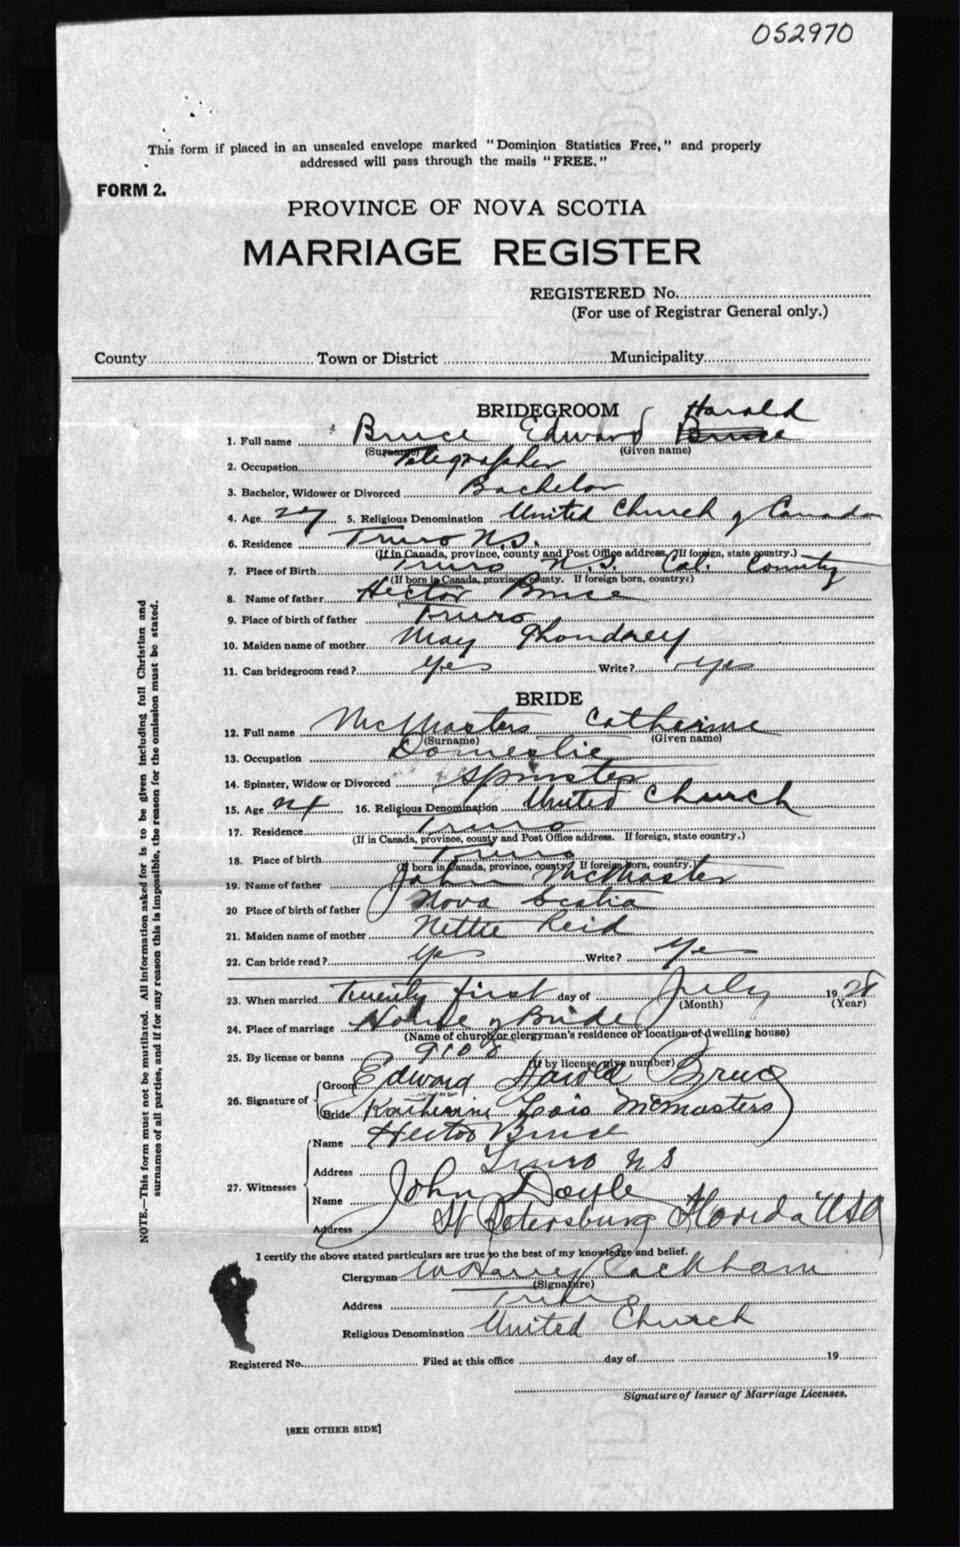 052970
This form if placed in an unsealed envelope marked "Dominion Statistics Free," and properly
addressed will pass through the mails "FREE."
FORM 2.
PROVINCE OF NOVA SCOTIA
MARRIAGE REGISTER
REGISTERED No.
(For use of Registrar General only.)
County Town or District Municipality
BRIDEGROOM
Harold
1. Full name Bruce Edward Bruce
(Surname) (Given name)
2. Occupation Telegrapher
3. Bachelor, Widower or Divorced Bachelor
4. Age 27 5. Religious Denomination United Church of Canada
6. Residence Truro N.S.
(If in Canada, province, county and Post Office address. If foreign, state country.)
7. Place of Birth Truro N.S. Col. County
(If born in Canada, province, county. If foreign born, country.)
8. Name of father Hector Bruce
9. Place of birth of father Truro
10. Maiden name of mother May
11. Can bridegroom read? Yes Write? Yes
BRIDE
12. Full name McMasters Catherine
(Surname) (Given name)
13. Occupation Domestic
14. Spinster, Widow or Divorced Spinster
15. Age 16. Religious Denomination United Church
17. Residence Truro
(If in Canada, province, county and Post Office address. If foreign, state country.)
18. Place of birth Truro
(If born in Canada, province, county. If foreign born, country.)
19. Name of father John McMaster
20 Place of birth of father Nova Scotia
21. Maiden name of mother Nettie Reid
22. Can bride read? Yes Write? Yes
23. When married Twenty first day of July 1928
(Month) (Year)
24. Place of marriage Home of Bride
(Name of church or clergyman's residence or location of dwelling house)
25. By license or banns 9108
(If by license give number)
26. Signature of
Groom Edward Harold Bruce
Bride Katherine Lois McMasters
27. Witnesses
Name Hector Bruce
Address Truro N S
Name John Doyle
Address St Petersburg Florida USA
I certify the above stated particulars are true to the best of my knowledge and belief.
Clergyman W Harry Packham
(Signature)
Address Truro
Religious Denomination United Church
Registered No. Filed at this office day of 19
Signature of Issuer of Marriage Licenses.
[SEE OTHER SIDE]
NOTE.—This form must not be mutilated. All information asked for is to be given including full Christian and
surnames of all parties, and if for any reason this is impossible, the reason for the omission must be stated.